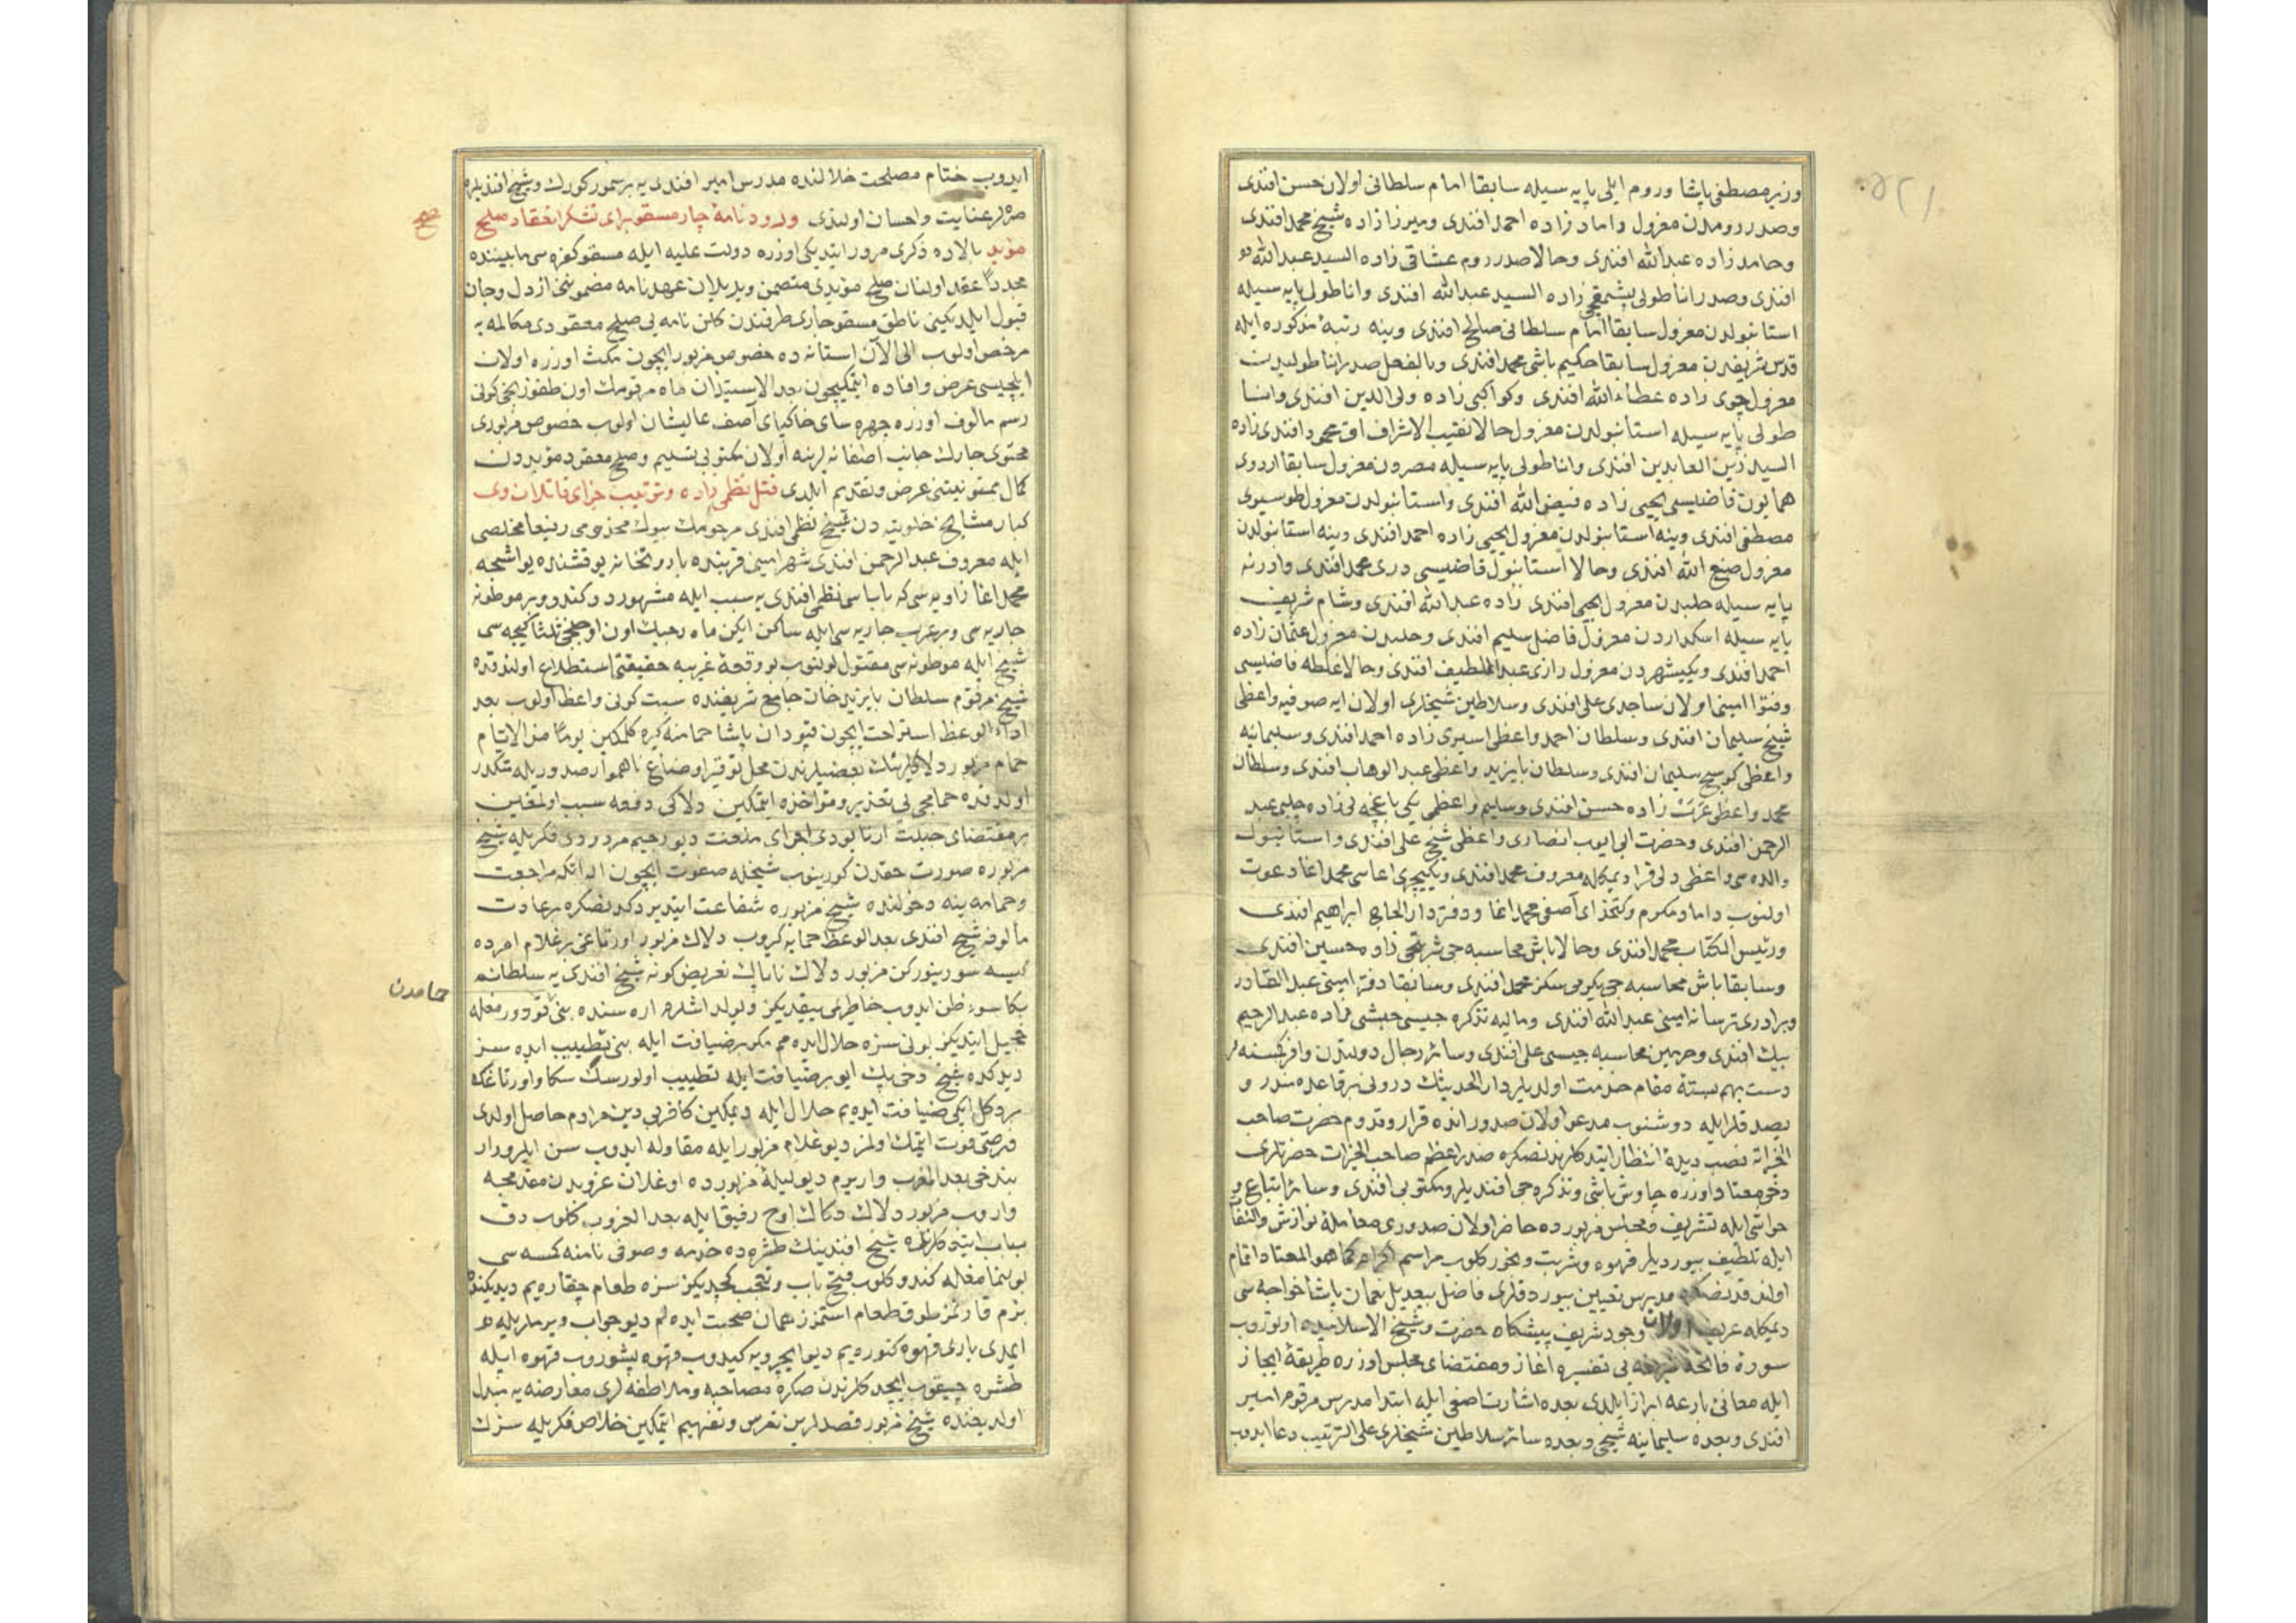 وزير مصطفى پاشا وروم ايلى پايه سيله سابقا امام سلطانى اولان حسن افندى
وصدر رومدن معزول داماد زاده احمد افندى وميرزا زاده شيخ محمد افندى
وحامد زاده عبدالله افندى وحالا صدر روم عشاقى زاده السيد عبدالله
افندى وصدر اناطولى پشمقجى زاده السيد عبدالله افندى واناطولى پايه سيله
استانبولدن معزول سابقا امام سلطانى صالح افندى وينه رتبۀ مذكوره ايله
قدس شريفدن معزول سابقا حكيم باشى محمد افندى وبالفعل صدر اناطوليدن
معزول چوى زاده عطاء الله افندى وكواكبى زاده ولى الدين افندى وانا
طولى پايه سيله استانبولدن معزول حالا نقيب الاشراف محمود افندى زاده
السيد زين العابدين افندى واناطولى پايه سيله مصردن معزول سابقا اردوى
همايون قاضيسى يحيى زاده فيض الله افندى واستانبولدن معزول طوسيوى
مصطفى افندى وينه استانبولدن معزول يحيى زاده احمد افندى وينه استانبولدن
معزول صنع الله افندى وحالا استانبول قاضيسى درى محمد افندى وادرنه
پايه سيله حلبدن معزول يحيى افندى زاده عبدالله افندى وشام شريف
پايه سيله اسكداردن معزول فاضل سليم افندى وحلبدن معزول عثمان زاده
احمد افندى ويكيشهردن معزول رازى عبداللطيف افندى وحالا غلطه قاضيسى
وفتوا امينى اولان ساجدى على افندى وسلاطين شيخلرى اولان ايه صوفيه واعظى
شيخ سليمان افندى وسلطان احمد واعظى اسيرى زاده احمد افندى وسليمانيه
واعظى كوسج سليمان افندى وسلطان بايزيد واعظى عبد الوهاب افندى وسلطان
محمد واعظى عرب زاده حسن افندى وسليم واعظى يكى باغچه لى زاده چلبى عبد
الرحمن افندى وحضرت ابى ايوب انصارى واعظى شيخ على افندى واستانبول
والده سى واعظى دلى قراديمكله معروف محمد افندى ويكيچرى اغاسى محمد اغا دعوت
اولنوب داماد مكرم وكتخداى آصفى محمد اغا ودفتردار الحاج ابراهيم افندى
ورئيس الكتاب محمد افندى وحالا باش محاسبه جى شريفى زاده حسين افندى
وسابقا باش محاسبه جى يكرمى سكز محمد افندى وسابقا دفتر امينى عبد القادر
وبرادرى ترسانه امينى عبدالله افندى وماليه تذكره جيسى حبشى زاده عبد الرحيم
بيك افندى وحرمين محاسبه جيسى على افندى وسائر رجال دولتدن وافر كمسنه لر
دست بهم بستۀ مقام خدمت اولديلر دار الحديثك درونى بر قاعده صدر و
بصدقلر ايله دوشنوب مدعو اولان صدور انده قرار وقدوم حضرت صاحب
الخيراته نصب ديدۀ انتظار ايتدكلرندنصكره صدر اعظم صاحب الخيرات حضرتلرى
دخى معتاد اوزره چاوش باشى وتذكره جى افنديلر ومكتوبى افندى وسائر اتباع و
حواشى ايله تشريف ومجلس مزبورده حاضر اولان صدورى معاملۀ نوازش والتفات
ايله تلطيف بيورديلر قهوه وشربت وبخور كلوب مراسم اكرام كما هو المعتاد اتمام
اولندقدنصكره مدرس تعيين بيوردقلرى فاضل بيعديل نعمان پاشا خواجه سى
ديمكله عريف اولان وجود شريف پيشكاه حضرت وشيخ الاسلاميده اوتوروب
سورۀ فاتحۀ شريفه يى تفسيره اغاز ومقتضاى مجلس اوزره طريقۀ ايجاز
ايله معانئ بارعه ابراز ايلدى بعده اشارت آصفى ايله ابتدا مدرس مرقوم امير
افندى وبعده سليمانيه شيخى وبعده سائر سلاطين شيخلرى على الترتيب دعا ايدوب
ايدوب ختام مصلحت خلالنده مدرس امير افندى يه بر سمور كورك وشيخ افنديلره
صره لر عنايت واحسان اولندى ورود نامۀ چار مسقو براى تشكر انعقاد صلح
صح
مؤبد بالاده ذكرى مرور ايتديكى اوزره دولت عليه ايله مسقو كفره سى مابيننده
مجدداً عقد اولنان صلح مؤبدى متضمن ويريلان عهدنامه مضمونى از دل وجان
قبول ايلديكينى ناطق مسقو چارى طرفندن كلن نامه يى صلح معقودى مكالمه يه
مرخص اولوب الى الآن استانه ده خصوص مزبور ايچون مكث اوزره اولان
ايلچيسى عرض وافاده ايتمكيچون بعد الاستيذان ماه مرقومك اون طقوزنجى كونى
رسم مألوف اوزره چهره ساى خاكپاى آصف عاليشان اولوب خصوص مزبورى
محتوى چارك جانب آصفانه لرينه اولان مكتوبى تسليم وصلح معقود مؤبددن
كمال ممنونيتنى عرض وتقديم ايلدى قتل نظمى زاده وترتيب جزاى قاتلان وى
كبار مشايخ خلوتيه دن شيخ نظمى افندى مرحومك بيوك مخدومى رفيعا مخلصى
ايله معروف عبد الرحمن افندى شهر امينى قربنده باروتخانه يوقشنده يواشجه
محمد اغا زاويه سى كه باباسى نظمى افندى يه سبب ايله مشهوردر كندو وبر موطوئه
جاريه سى وبر عرب جاريه سى ايله ساكن ايكن ماه رجبك اون اوچنجى ثلثا كيجه سى
شيخ ايله موطوئه سى مقتول بولنوب بو وقعۀ غريبه حقيقتى استطلاع اولندقده
شيخ مرقوم سلطان بايزيد خان جامع شريفنده سبت كونى واعظ اولوب بعد
اداء الوعظ استراحت ايچون قپودان پاشا حمامنه كيره كلمكين يوماً من الايام
حمام مزبور دلاكلرينك بعضيلرندن محل توقير اوضاع ناهموار صدوريله متكدر
اولدقده حمامجى يى تعذير ومؤاخذه ايتمكين دلاكى دفعه سبب اولمغين
بر مقتضاى جبلت ارناوودى اجراى ملعنت ديو رجيم مردودى فكريله شيخ
مزبوره صورت حقدن كورينوب شيخله صفوت ايچون اكا مراجعت
وحمامه ينه دخولنده شيخ مزبوره شفاعت ايتديردكدنصكره بر عادت
مألوفه شيخ افندى بعد الوعظ حمامه كيروب دلاك مزبور اورتاغى بر غلام امرده
كيسه سورينوركن مزبور دلاك ناپاك تعريض كونه شيخ افندى يه سلطانم
حمامدن
بكا سوء ظن ايدوب خاطرمى ييقديكز ولوله اشلرم اره سنده بنى قودورمغله
خجيل ايتديكز بونى سزه حلال ايده مم مكر بر ضيافت ايله بنى تطييب ايده سز
ديدكده شيخ دخى پك ايو بر ضيافت ايله تطييب اولورسك سكا واورتاغكه
بر دكل ايكى ضيافت ايده يم حلال ايله ديمكين كافر بى دين مرادم حاصل اولدى
فرصتى فوت ايتمك اولمز ديو غلام مزبور ايله مقاوله ايدوب سن ايلرو وار
بن دخى بعد المغرب واريرم ديو ليلۀ مزبورده اوغلان غروبدن مقدمجه
واروب مزبور دلاك دكاك اوچ رفيق ايله بعد الغروب كلوب دق
باب ايتدكلرنده شيخ افندينك طشره ده خدمه وصوفى نامنه كمسه سى
بولنمامغله كندو كلوب فتح باب وتعجب كچديكز سزه طعام چقاره يم ديديكنده
بزم قارنمز طوق طعام استمزز همان صحبت ايده لم ديو جواب ويرملريله
ايمدى بارى قهوه كتوره يم ديو ايچرويه كيدوب قهوه پشوروب قهوه ايله
طشره چيقوب ايچدكلرندن صكره مصاحبه وملاطفه لرى معارضه يه مبدل
اولديغنده شيخ مزبور قصدلرين تفرس وتفهيم ايتمكين خلاص فكريله سزك